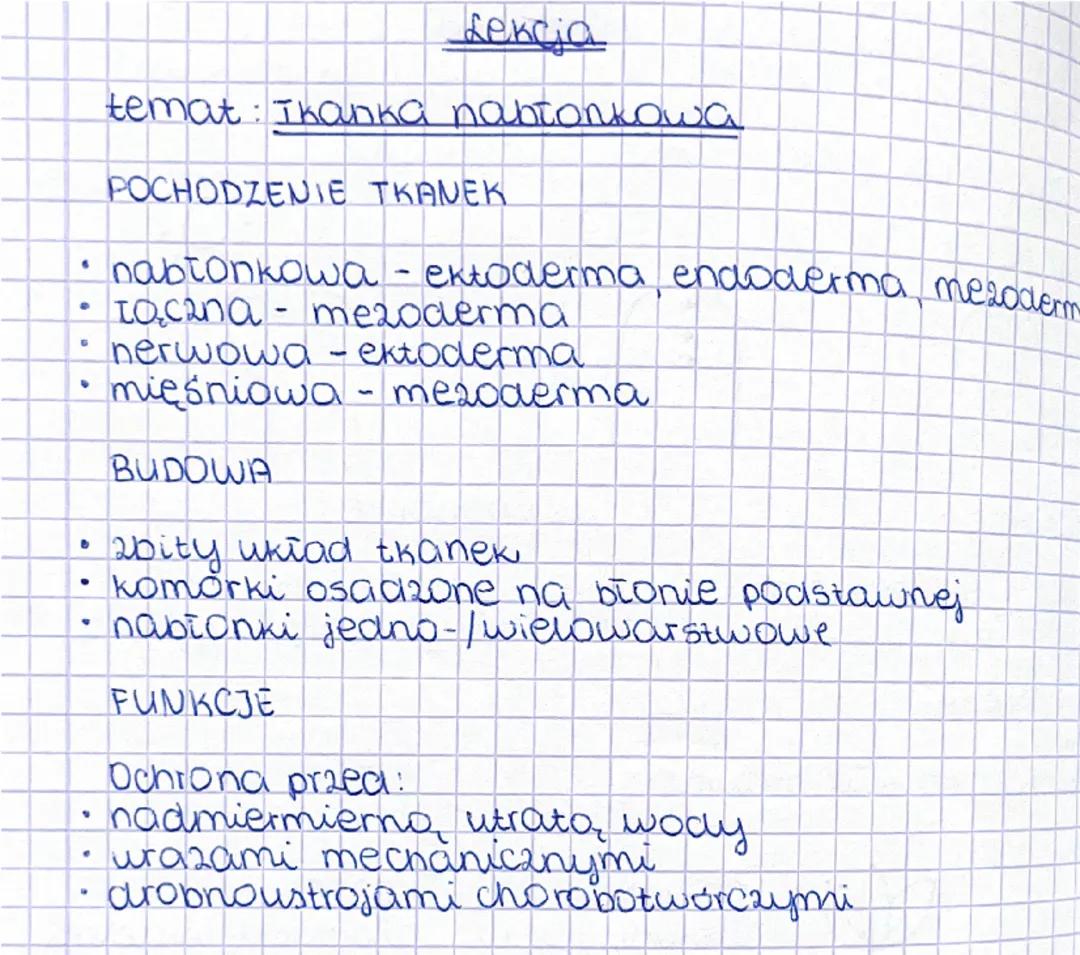 Lekcja
temat: Tkanka nabłonkowa
POCHODZENIE TKANEK
• nabłonkowa - ektoderma, endoderma, mezoderm
• łączna - mezoderma
• nerwowa - ektoderma
• mięśniowa - mezoderma
BUDOWA
• zbity układ tkanek
• komórki osadzone na błonie podstawnej
• nabłonki jedno-/wielowarstwowe
FUNKCJE
Ochrona przed:
• nadmiermierną utratą wody
• urazami mechanicznymi
• drobnoustrojami chorobotwórczymi